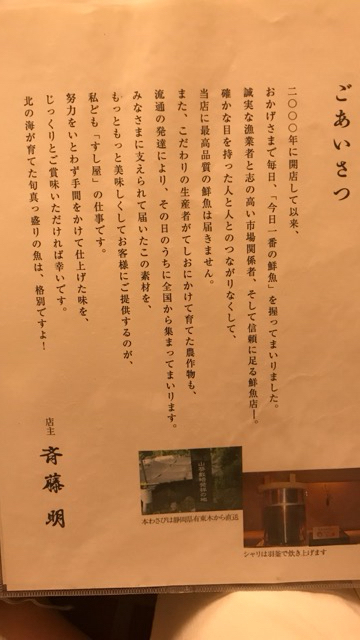 ごあいさつ
二〇〇〇年に開店して以来、
おかげさまで毎日、「今日一番の鮮魚」を握ってまいりました。
誠実な漁業者と志の高い市場関係者、そして信頼に足る鮮魚店―。
確かな目を持った人と人とのつながりなくして、
当店に最高品質の鮮魚は届きません。
また、こだわりの生産者がてしおにかけて育てた農作物も、
流通の発達により、その日のうちに全国から集まってまいります。
みなさまに支えられて届いたこの素材を、
もっともっと美味しくしてお客様にご提供するのが、
私ども「すし屋」の仕事です。
努力をいとわず手間をかけて仕上げた味を、
じっくりとご賞味いただければ幸いです。
北の海が育てた旬真っ盛りの魚は、格別ですよ！
店主 斉藤 明
本わさびは静岡県有東木から直送
シャリは羽釜で炊き上げます